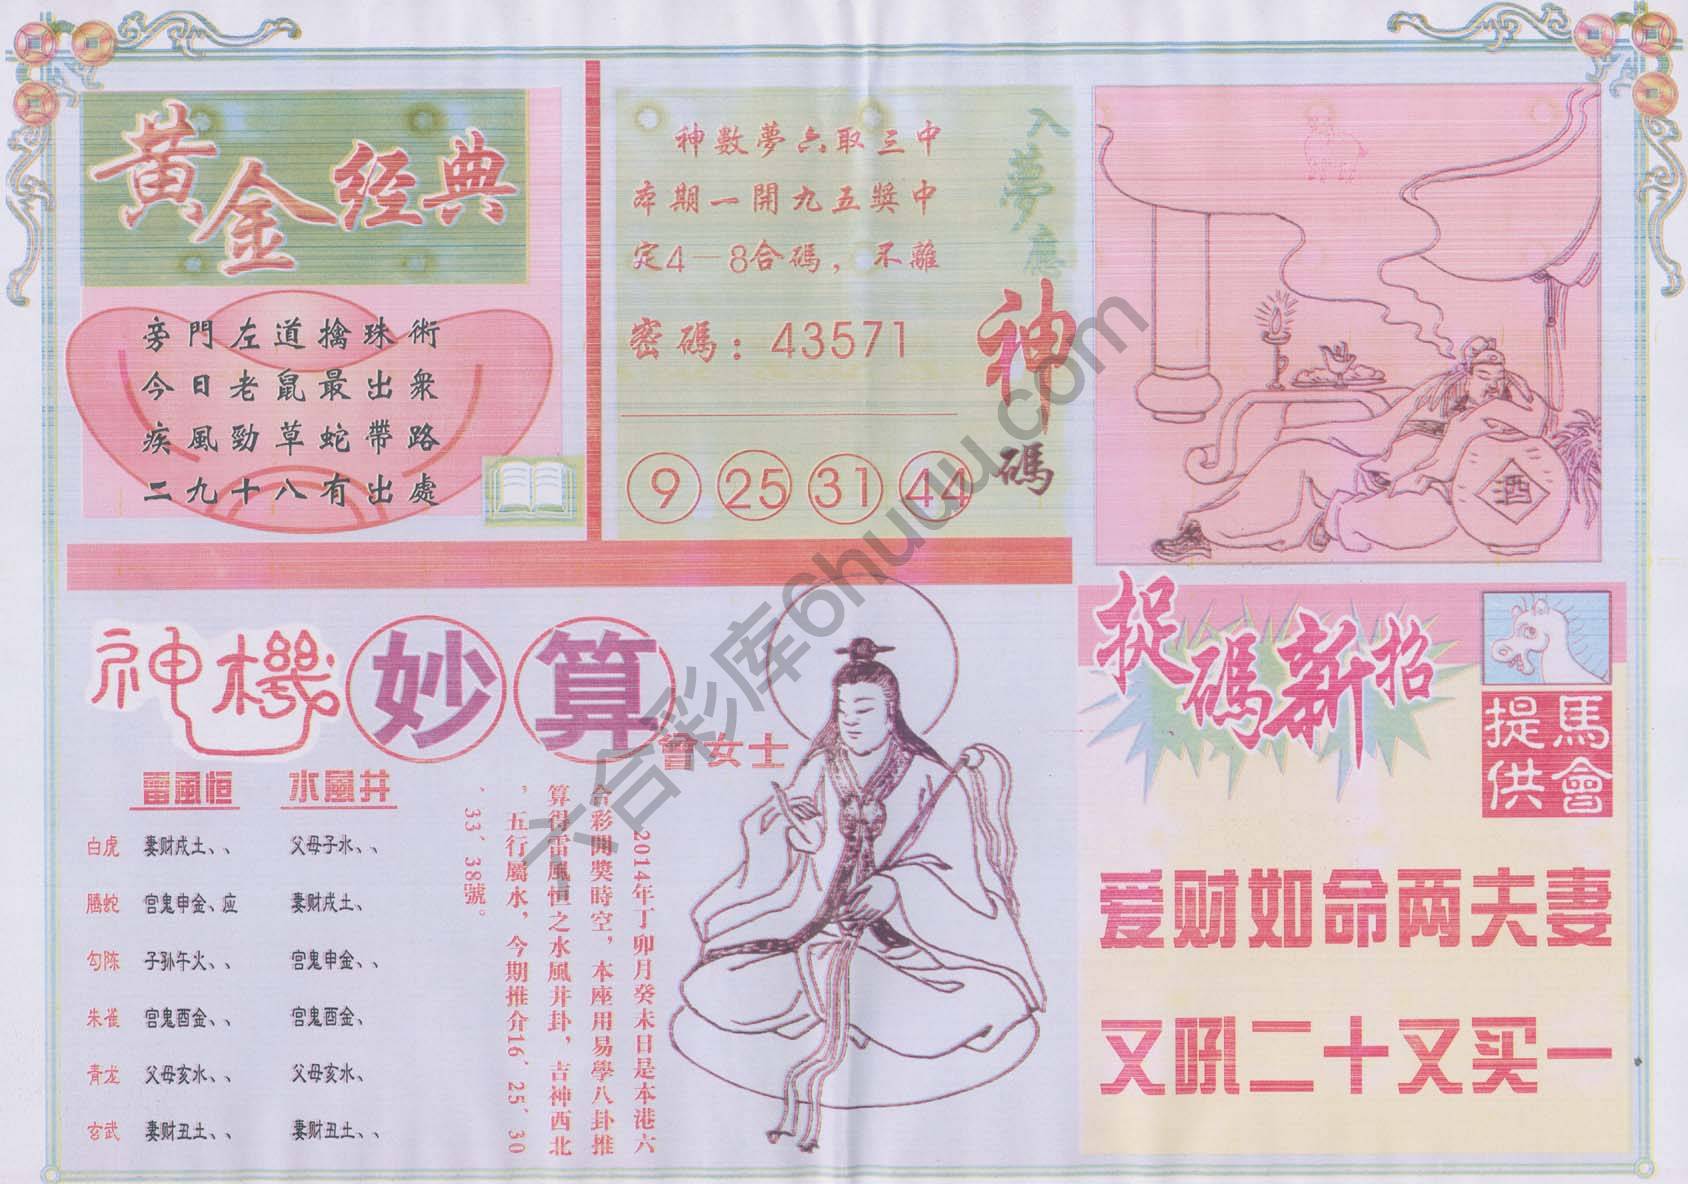 黃金经典
旁門左道擒珠術
今日老鼠最出衆
疾風勁草蛇帶路
二九十八有出處
神數夢六取三中
本期一開九五獎中
定4－8合碼，不離
密碼：43571
9 25 31 44
入夢應神碼
酒
神機妙算
曾女士
雷風恒 水風井
白虎 妻财戌土、、 父母子水、、
螣蛇 官鬼申金、应 妻财戌土、
勾陈 子孙午火、、 官鬼申金、、
朱雀 官鬼酉金、、 官鬼酉金、
青龙 父母亥水、、 父母亥水、
玄武 妻财丑土、、 妻财丑土、、
2014年丁卯月癸未日是本港六
合彩開獎時空，本座用易學八卦推
算得雷風恒之水風井卦，吉神西北
，五行屬水，今期推介16、25、30
、33、38號。
捉碼新招
馬會
提供
爱财如命两夫妻
又吼二十又买一
六合彩库6huuu.com